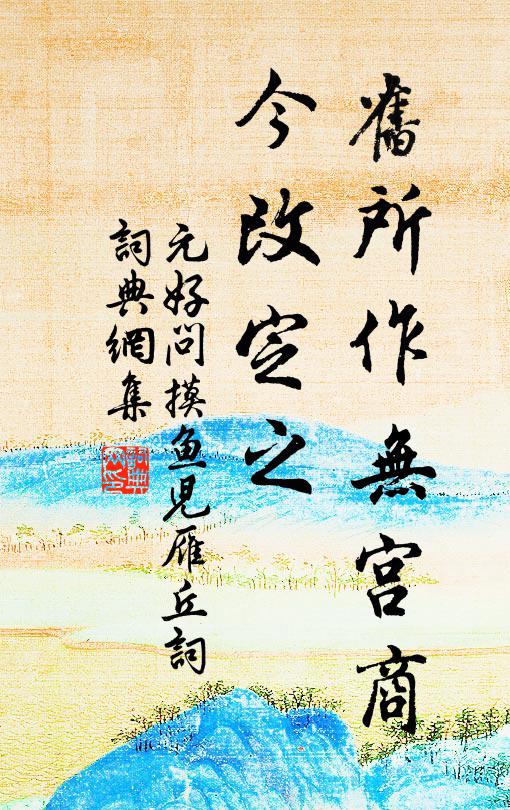 舊所作無宮商
今改定之
元好問摸魚兒雁丘詞
詞典網集